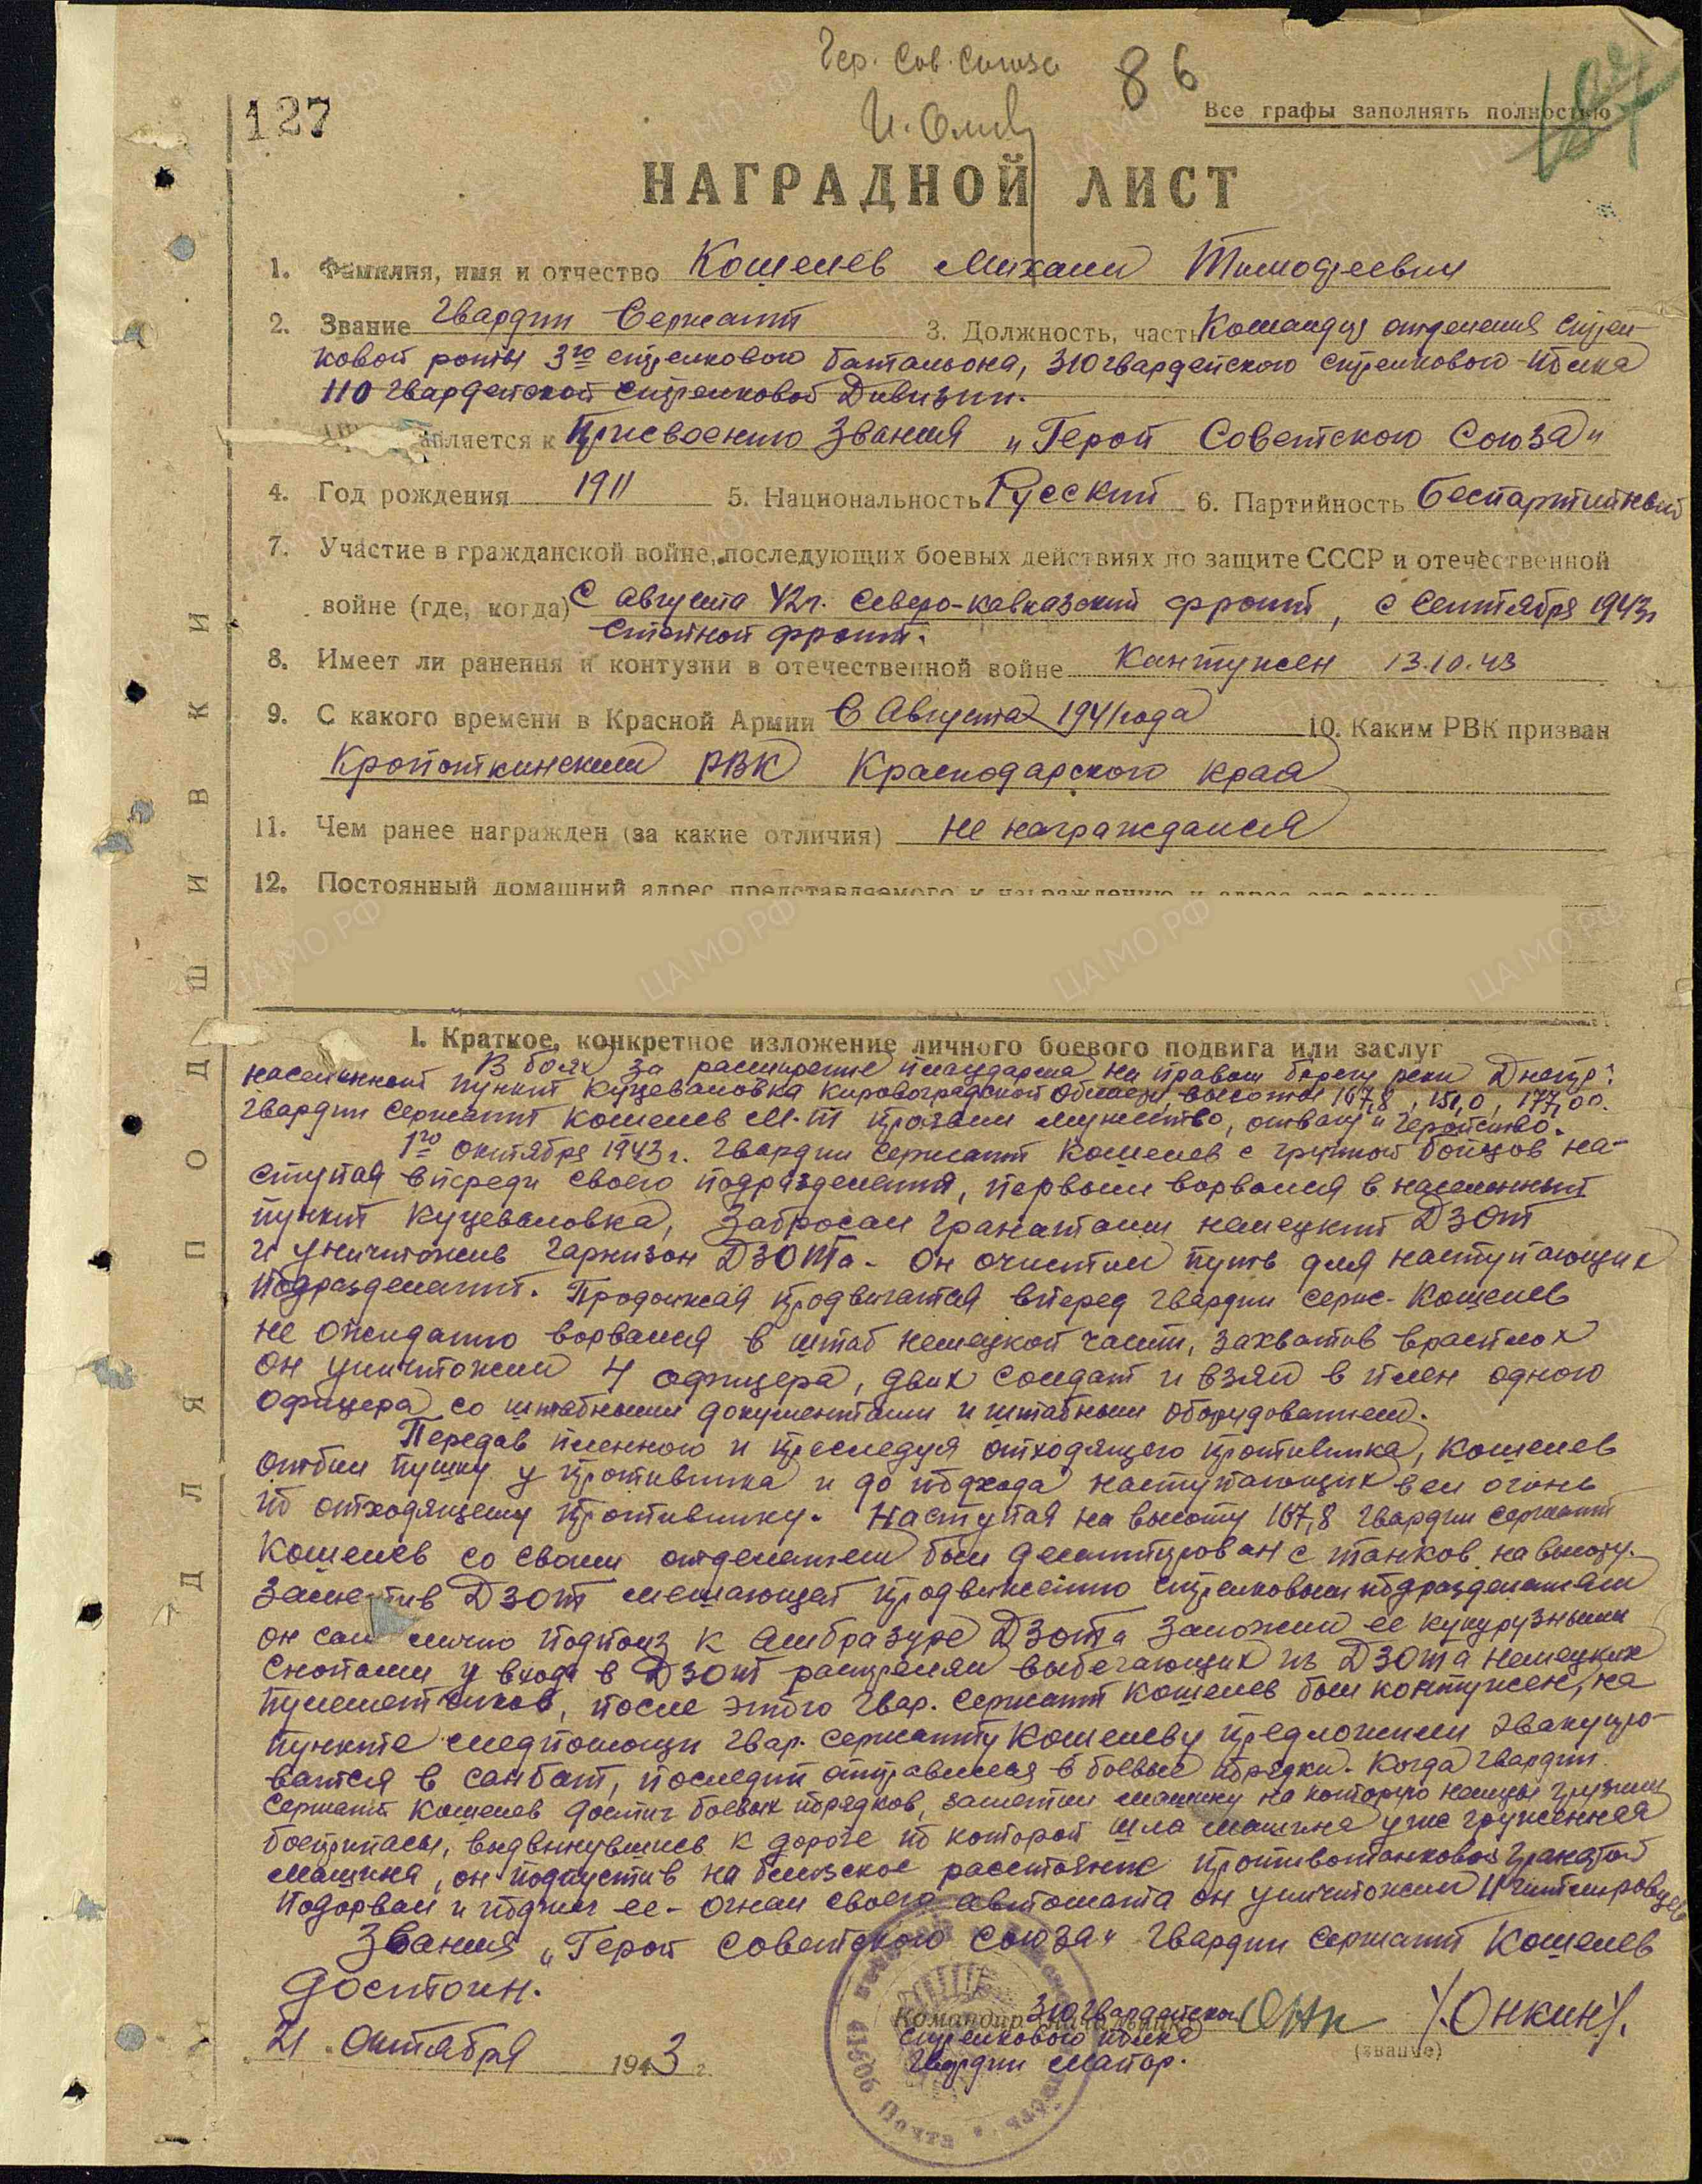 Гер. Сов. Союза
86
127
Все графы заполнять полностью
НАГРАДНОЙ ЛИСТ
1. Фамилия, имя и отчество Кошелев Михаил Тимофеевич
2. Звание Гвардии Сержант 3. Должность, часть Командир отделения стрел-
ковой роты 3го стрелкового батальона, 310 гвардейского стрелкового полка
110 Гвардейской Стрелковой Дивизии.
авляется к Присвоению Звания „Герой Советского Союза"
4. Год рождения 1911 5. Национальность Русский 6. Партийность беспартийный
7. Участие в гражданской войне, последующих боевых действиях по защите СССР и отечественной
войне (где, когда) С Августа 42г. Северо-кавказский фронт, с Сентября 1943г
Степной фронт.
8. Имеет ли ранения и контузии в отечественной войне Контужен 13.10.43
9. С какого времени в Красной Армии С Августа 1941 года 10. Каким РВК призван
Кропоткинским РВК Краснодарского края
11. Чем ранее награжден (за какие отличия) не награждался
12. Постоянный домашний адрес представляемого к награждению и адрес его семьи
ДЛЯ ПОДШИВКИ
I. Краткое, конкретное изложение личного боевого подвига или заслуг
В боях за расширение плацдарма на правом берегу реки Днепр:
населенный пункт Куцеваловка Кировоградской области, высоты 167,8, 151,0, 177,00.
Гвардии Сержант Кошелев М.Т проявил мужество, отвагу и геройство.
1го октября 1943г. Гвардии Сержант Кошелев с группой бойцов на-
ступая впереди своего подразделения, первым ворвался в населенный
пункт Куцеваловка, Забросал гранатами немецкий ДЗОТ
и уничтожив гарнизон ДЗОТа - он очистил путь для наступающих
подразделений. Продолжая продвигатся вперед гвардии серж- Кошелев
не ожиданно ворвался в штаб немецкой части, захватив врасплох
он уничтожил 4 офицера, двух солдат и взял в плен одного
офицера со штабными документами и штабным оборудованием.
Передав пленного и преследуя отходящего противника, Кошелев
отбил пушку у противника и до подхода наступающих вел огонь
по отходящему противнику. Наступая на высоту 167,8 гвардии сержант
Кошелев со своим отделением был десантирован с танков на высоту.
Заметив ДЗОТ мешающей продвижению стрелковым подразделениям
он сам лично подполз к амбразуре ДЗОТа заложил ее кукурузными
снопами у входа в ДЗОТ расстрелял выбегающих из ДЗОТа немецких
пулеметчиков, после этого гвар. Сержант Кошелев был контужен, на
пункте медпомощи гвар. Сержанту Кошелеву предложили эвакуиро-
ватся в санбат, последний отправился в боевые порядки. Когда гвардии
Сержант Кошелев достиг боевых порядков, заметил машину на которую немцы грузили
боеприпасы, выдвинувшись к дороге по которой шла машина уже груженная
машина, он подпустив на близкое расстояние противотанковой гранатой
подорвал и поджег ее - огнем своего автомата он уничтожил 4 гитлеровцев
Звания „Герой Советского Союза" гвардии сержант Кошелев
достоин.
Командир 310 гвардейского
стрелкового полка
Гвардии майор. /Онкин/.
(звание)
21 Октября 1943 г.
41506 Почта
ЦА МО РФ